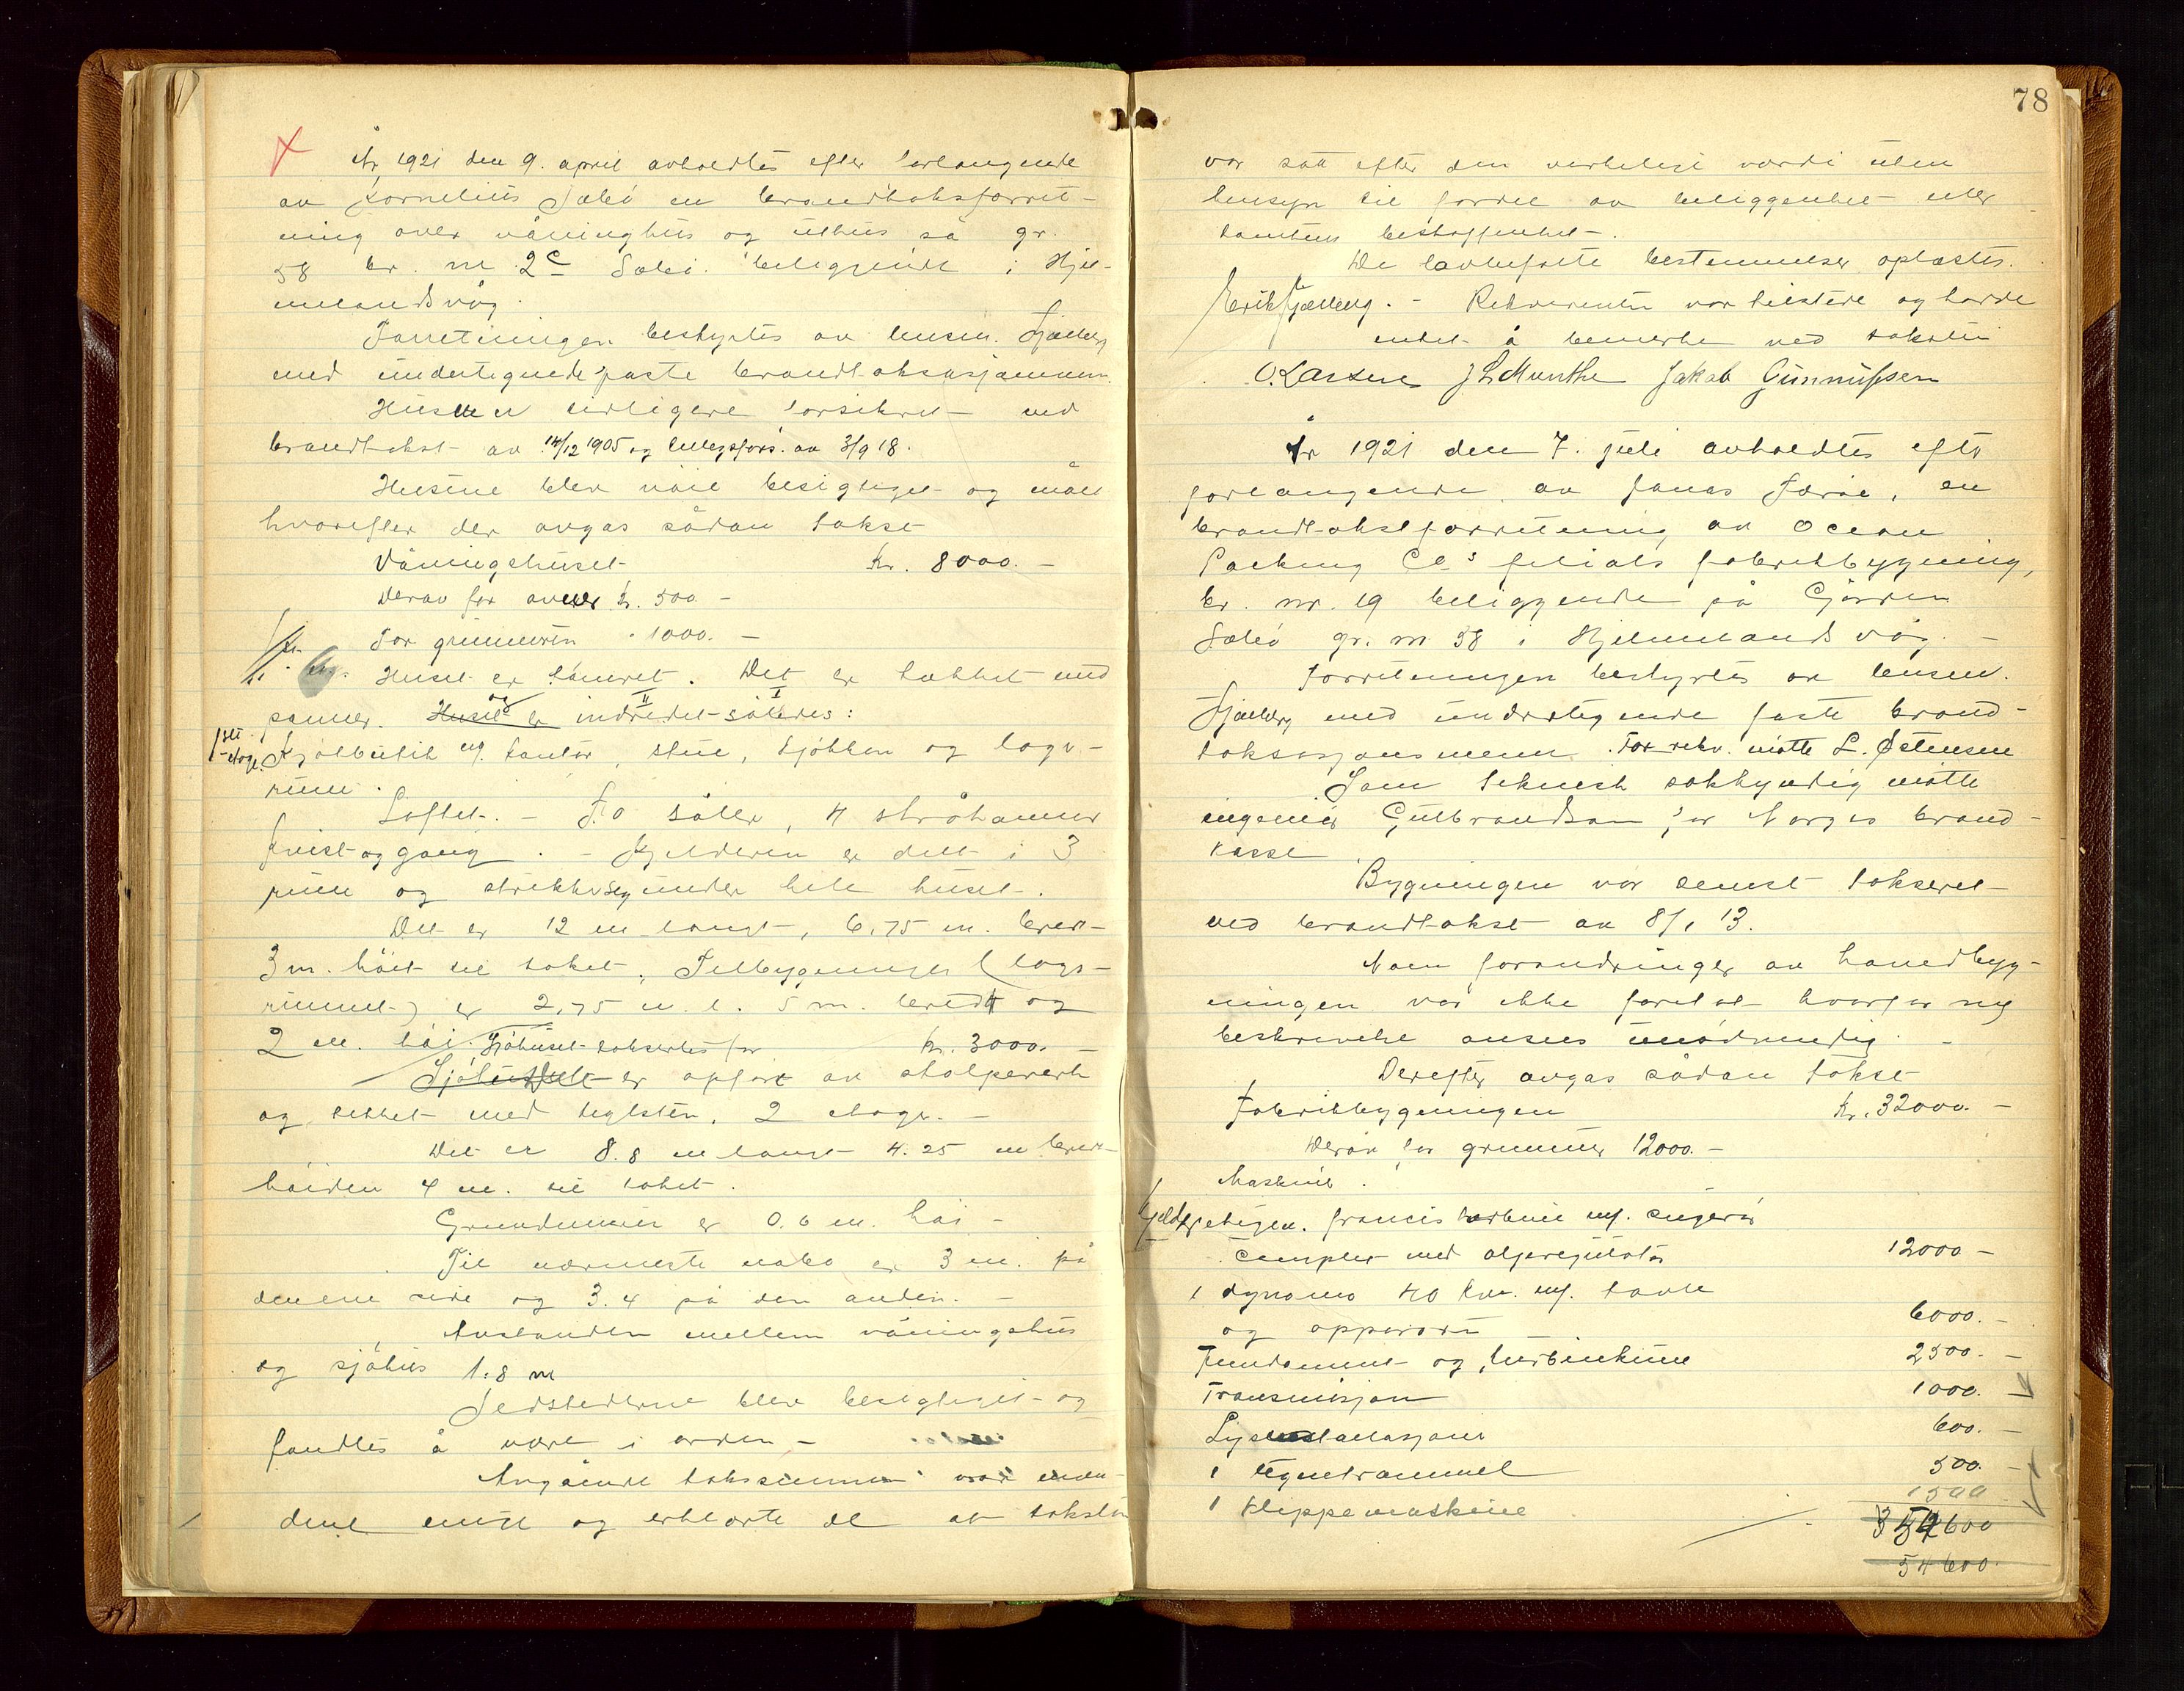 År 1921 den 9. april avholdtes efter forlangende
av Kornelius Sæbö en brandtakstforret-
ning over våninghus og uthus på gr.
58 br. nr. 2c Sæbö beliggende i Hjel-
melandsvåg.
Forretningen bestyrtes av lensm. Fjælberg
med undertegnede faste brandtakstmænn.
Husene er tidligere forsikret ved
brandtakst av 14/12 1905 og tillægsfors. av 3/9 18.
Husene blev nöie besigtiget og målt
hvorefter der avgas sådan takst
Våningshuset kr. 8000. –
Derav for ovner kr. 500 –
For grunmuren " 1000. –
Huset er tömret. Det er tækket med
panner. Huset og er indredet således:
1ste etage. Kjölbutik m/. kontor, stue, kjökken og lager-
rum.
Loftet. – To saler, 4 små kammer
kvist og gang. – Kjelderen er delt i 3
rum og strækker seg under hele huset.
Det er 12 m langt, 6,75 m. bredt
3 m. höit til taket. Tilbygningen (lager-
rummet) er 2,75 m. l. 5 m. bredt og
2 m. höi. Sjöhuset takseertes for kr. 3000. –
Sjöhuset er opfört av stolpeverk
og tækket med teglsten, 2 etager. –
Det er 8.8 m langt 4.25 m bredt
höiden 4 m. til taket.
Grundmuren er 0.6 m. höi –
Til nærmeste nabo er 3 m. på
den ene side og 3.4 på den anden. –
Avstanden mellem våningshus
og sjöhus 1.8 m
Ildstederne blev besigtiget og
fandtes å være i orden –
Angående takstsummen var
enige og erklærte de at taksten
78
var satt efter den virkelige værdi uten
hensyn til fordel av beliggenhet eller
tomtens beskaffenhet –.
De lovbefalte bestemmelser oplæstes.
Erik Fjælberg. – Rekvirenten var tilstede og havde
intet å bemerke ved taksten
O. Larsen J L Munthe Jakob Gunnufsen
År 1921 den 7. juli avholdtes efter
forlangende av Jonas Færöe, en
brandtakstforretning av Ocean
Packing Co's filials fabrikbygning,
br. nr. 19 beliggende på Gården
Sæbö gr. nr 58 i Hjelmelandsvåg. –
Forretningen bestyrtes av lensm.
Fjælberg med undertegnede faste brand-
takstsjonsmenn. For rekv. mötte L. Östensen
Som teknisk sakkyndig mötte
ingeniör Gulbrandsen for Norges brand-
kasse
Bygningen var senest takseret
ved brandtakst av 8/1 13.
Noen forandringer av hovedbyg-
ningen var ikke foretat hvorfor ny
beskrivelse ansees unödvendig. –
Derefter avgas sådan takst
Fabrikbygningen kr. 32000. –
Derav for grunmur 12000. –
Maskiner.
Kjelderetagen. francis turbin m/. sugerör
complet med oljeregulator 12000 –
1 dynamo 40 kw. m/. tavle
og apparater 6000. –
Fundament og turbinkum 2500. –
Transmisjon 1000. –
Lysinstallasjoner 600. –
1 egnetrommel 500. –
1 Klippemaskine 1500
54600
54600